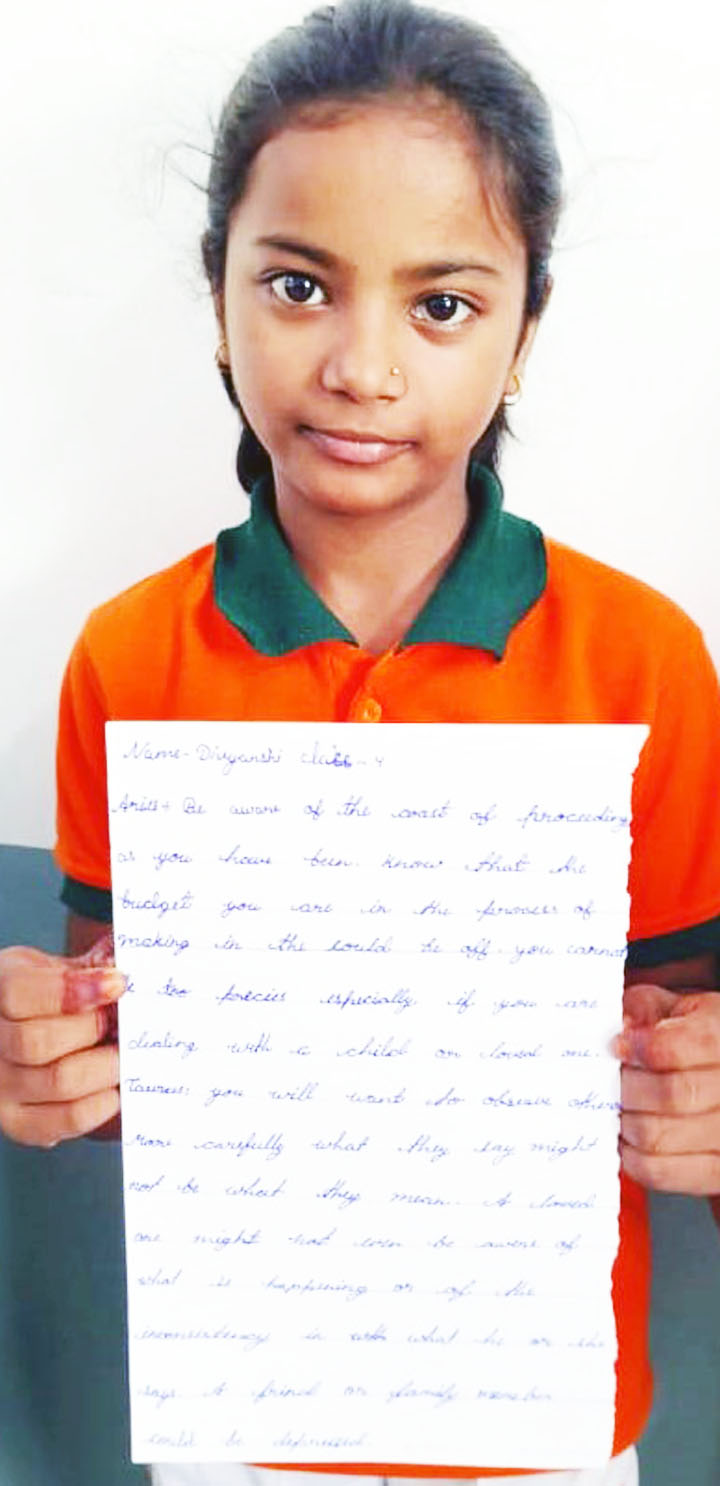 Name- Divyanshi class - 4
Aries + Be aware of the coast of proceeding
as you have been. Know that the
budget you are in the process of
making in the could be off. you cannot
too precies especially if you are
dealing with a child or loved one.
Taurus: you will want to observe others
more carefully what they say might
not be what they mean. A loved
one might not even be aware of
what is happening or of the
inconsistency in with what he or she
says. A frind or family member
could be depressed.